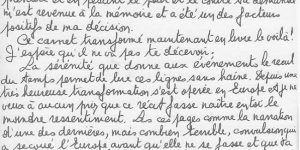 m'est revenue à la mémoire et a été un des facteurs
positifs de ma décision.
Ce carnet transformé maintenant en livre le voilà!
J'espère qu'il ne va pas te décevoir.
La sérénité que donne aux événements, le recul
du temps permet de lire ces lignes sans haine. Depuis une
très heureuse transformation s'est opérée en Europe et je ne
veux à aucun prix que ce récit fasse naître en toi le
moindre ressentiment. Lis ces pages comme la narration
d'une des dernières, mais combien terrible, convulsion qui
a secoué l'Europe avant qu'elle ne se fasse et que ta